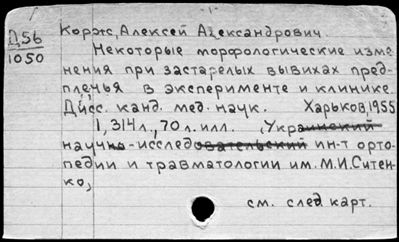 Д56
1050
Корж, Алексей Александрович.
Некоторые морфологические изме-
нения при застарелых вывихах пред-
плечья в эксперименте и клинике.
Дисс. канд. мед. наук. Харьков, 1955
1, 314 л., 70 л. илл. (Украинский
научно-исследовательский ин-т орто-
педии и травматологии им. М.И. Ситен-
ко,
см. след карт.